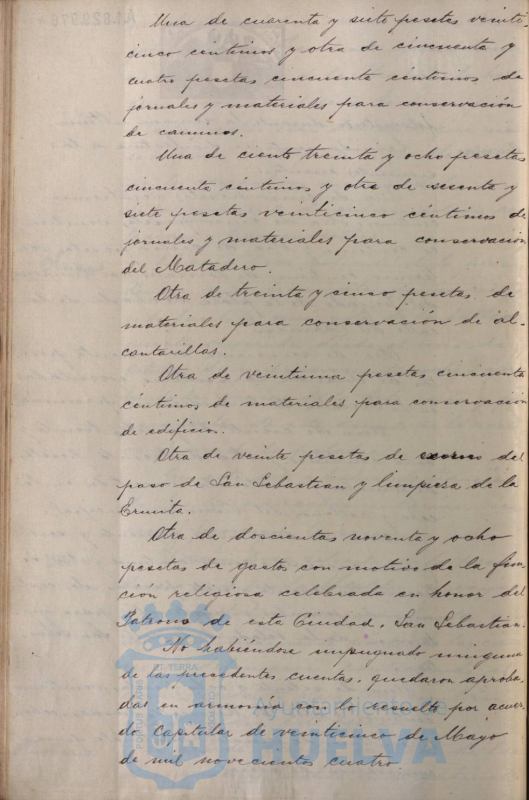 Una de cuarenta y siete pesetas veinti-
cinco centimos y otra de cincuenta y
cuatro pesetas cincuenta céntimos de
jornales y materiales para conservación
de caminos.
Una de ciento treinta y ocho pesetas
cincuenta céntimos y otra de sesenta y
siete pesetas veinticinco céntimos de
jornales y materiales para conservación
del Matadero.
Otra de treinta y cinco pesetas de
materiales para conservación de al-
cantarillas.
Otra de veintiuna pesetas cincuenta
céntimos de materiales para conservación
de edificios.
Otra de veinte pesetas de exorno del
paso de San Sebastian y limpieza de la
Ermita.
Otra de doscientas noventa y ocho
pesetas de gastos con motivo de la fun-
ción religiosa celebrada en honor del
Patrono de esta Ciudad, San Sebastian.
No habiéndose impugnado ninguna
de las precedentes cuentas, quedaron aproba-
das en armonía con lo resuelto por acuer-
do Capitular de veinticinco de Mayo
de mil novecientos cuatro.
Ayuntamiento de
HUELVA